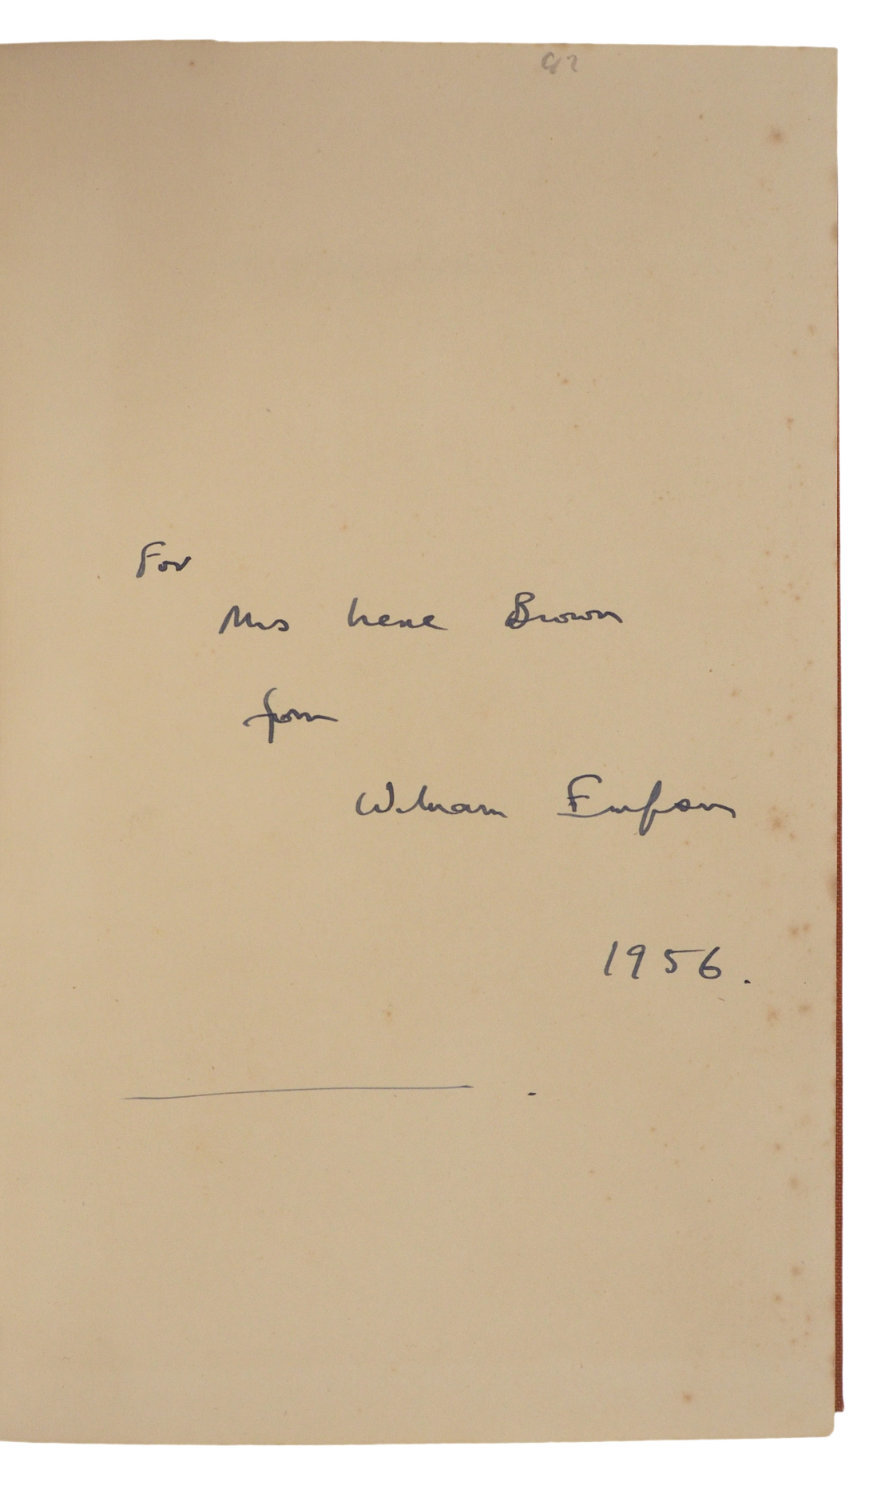 For
Mrs Irene Brown
from
William Empson
1956.